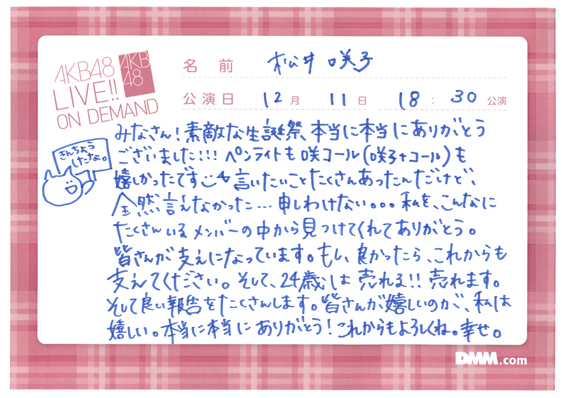 AKB48
LIVE!!
ON DEMAND
AKB
48
名前 松井咲子
公演日 12月 11日 18:30 公演
みなさん!素敵な生誕祭、本当に本当にありがとう
ございました!!!ペンライトも咲コール(咲子コール)も
嬉しかったです 言いたいことたくさんあったんだけど、
全然言えなかった…申しわけない。。。私を、こんなに
たくさんいるメンバーの中から見つけてくれてありがとう。
皆さんが支えになっています。もし、良かったら、これからも
支えてください。そして、24歳は売れる!!売れます。
そして良い報告をたくさんします。皆さんが嬉しいのが、私は
嬉しい。本当に本当にありがとう!これからもよろしくね。幸せ。
きんちょう
したなぁ。
DMM.com